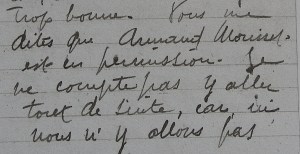 trop bonne. Vous me
dites que Armand
est en permission. Je
ne compte pas y aller
tout de suite, car ici
nous n'y allons pas